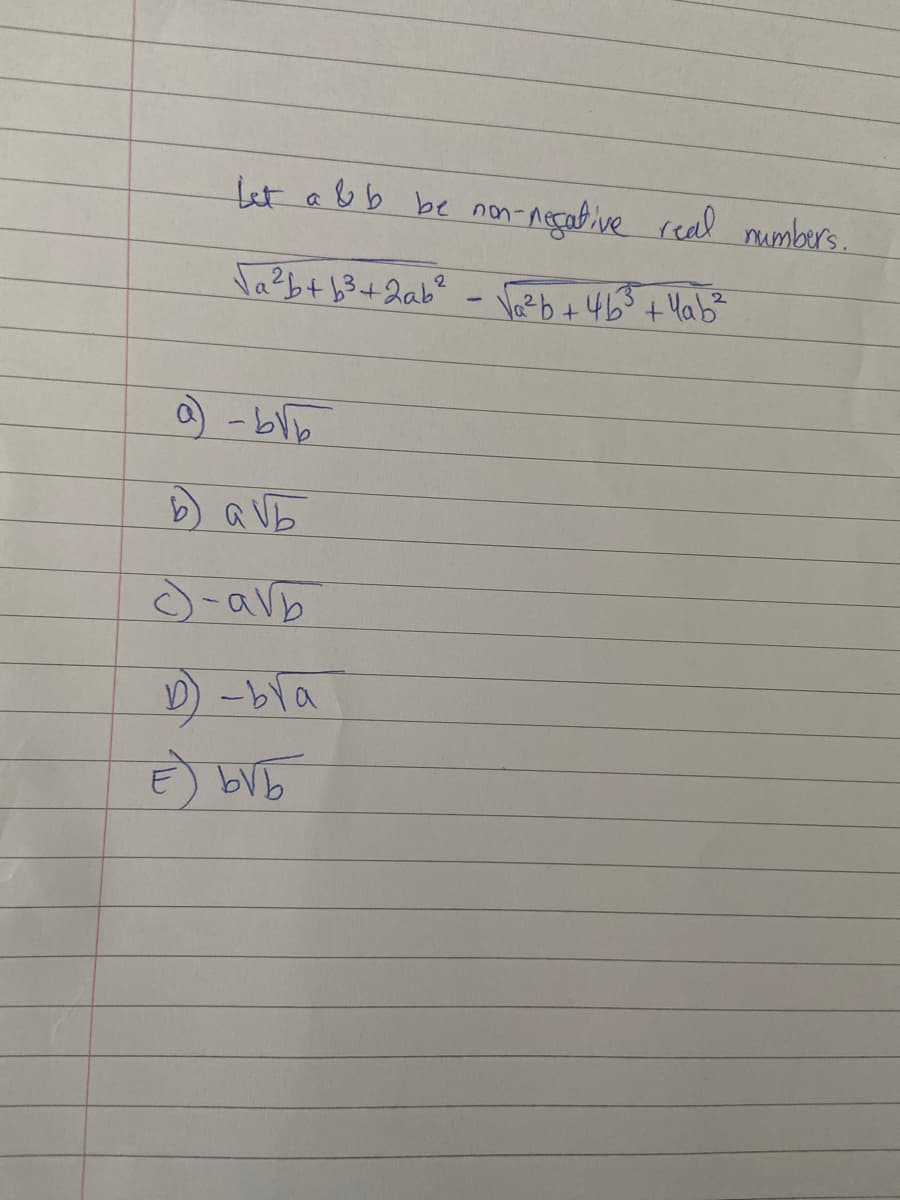 Let a & b be non-negative real numbers.
√a²b + b³ + 2ab² - √a²b + 4b³ + 4ab²
a) -b√b
b) a√b
c) -a√b
D) -b√a
E) b√b